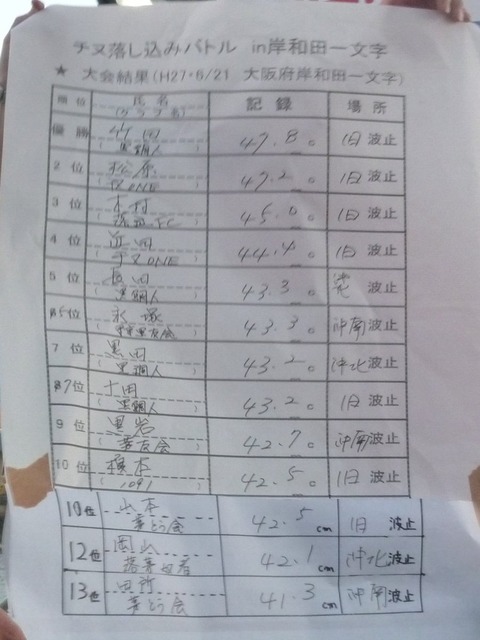 チヌ落し込みバトル in岸和田一文字
★ 大会結果(H27・6/21 大阪府岸和田一文字)
順位 氏名 (クラブ名) 記録 場所
優勝 竹田 47.8 旧波止
黒鯛人
2位 松原 47.2 旧波止
ONE
3位 木村 45.0 旧波止
FC
4位 近田 44.4 旧波止
チヌONE
5位 長田 43.3 波止
黒鯛人
5位 永塚 43.3 沖南波止
友会
7位 黒田 43.2 沖北波止
黒鯛人
7位 十田 43.2 旧波止
黒鯛人
9位 黒岩 42.7 沖南波止
友会
10位 橋本 42.5 旧波止
1091
10位 山本 42.5cm 旧波止
会
12位 岡山 42.1cm 沖北波止
13位 田所 41.3cm 沖南波止
会